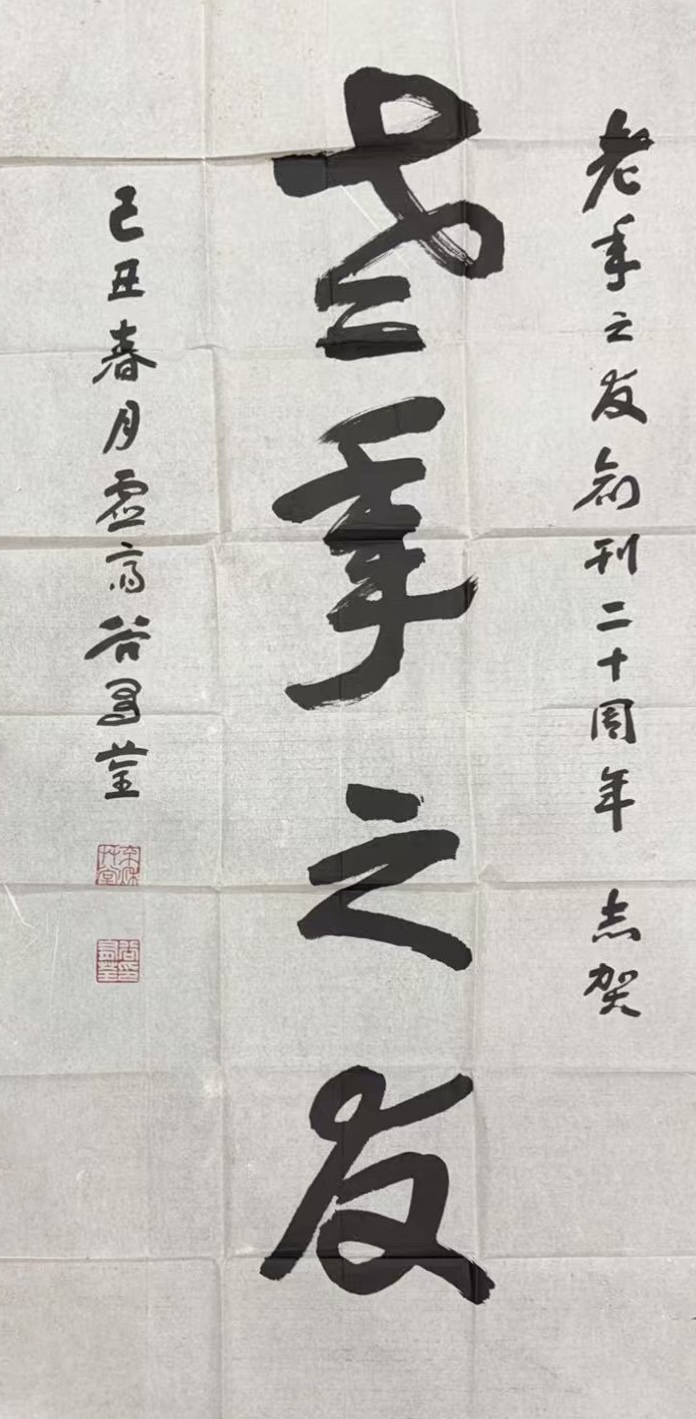 老年之友创刊二十周年 志贺
耆年之友
己丑春月虚斋谷